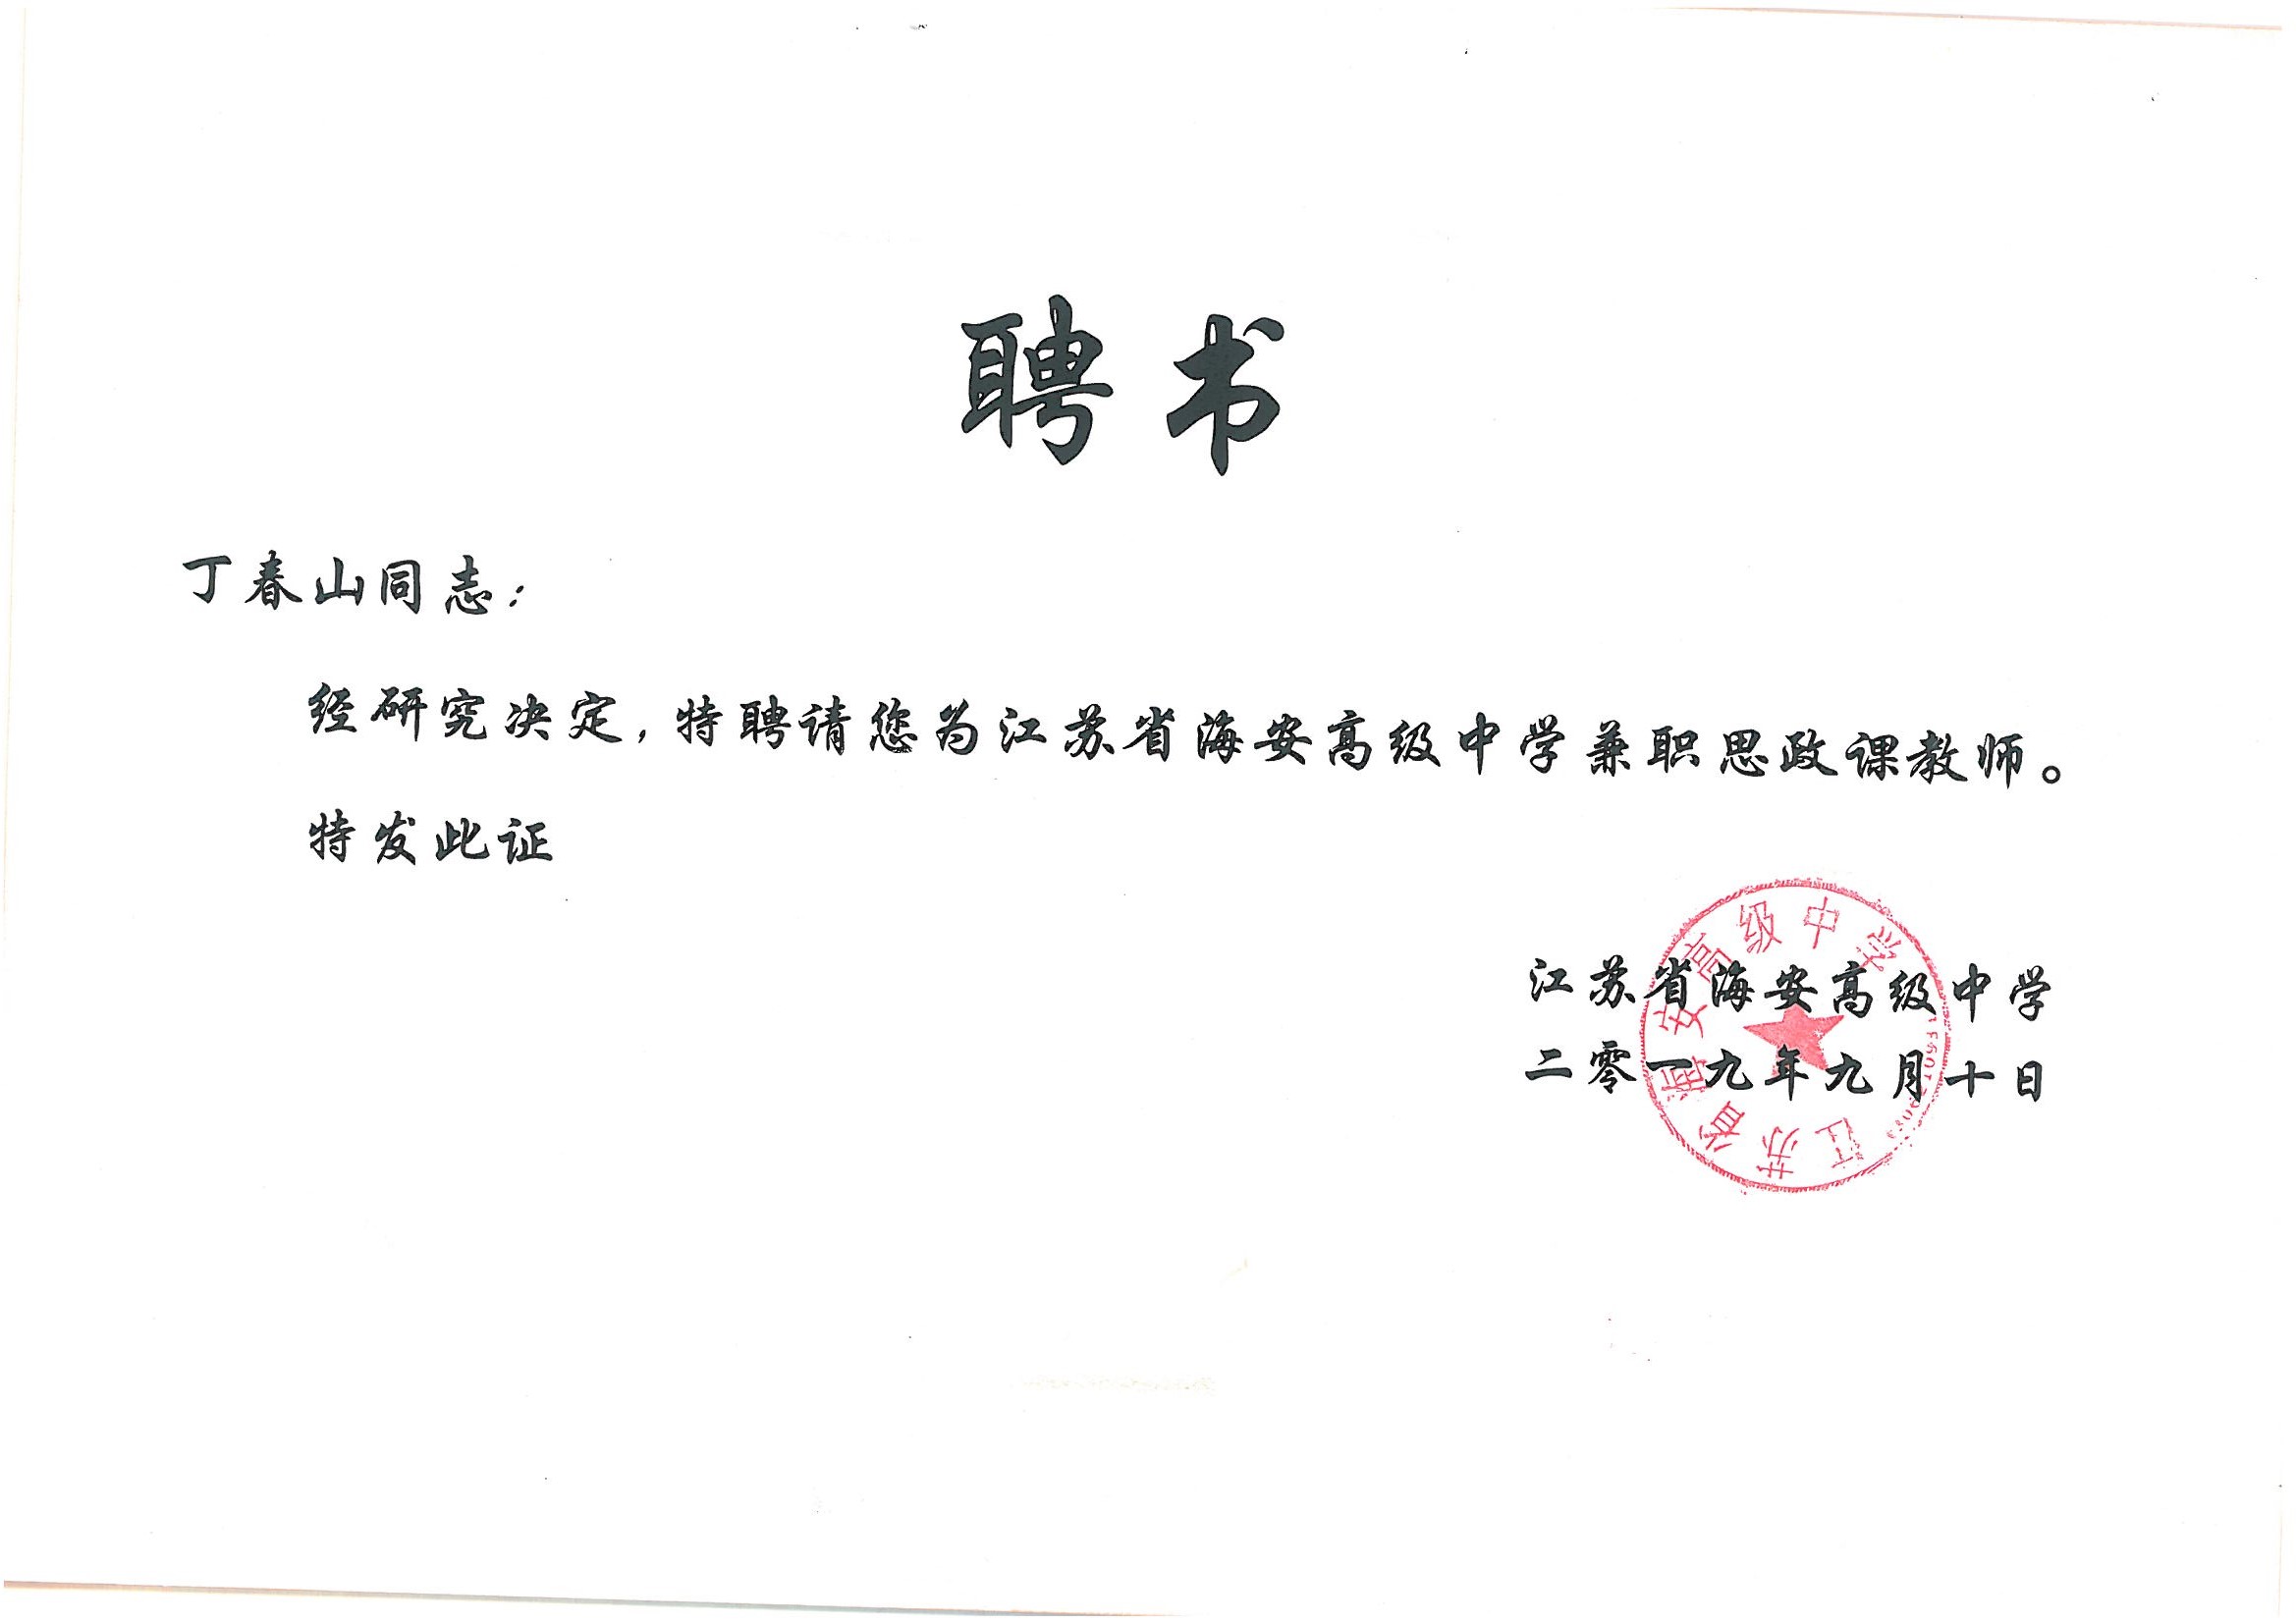 聘书
丁春山同志：
经研究决定，特聘请您为江苏省海安高级中学兼职思政课教师。
特发此证
江苏省海安高级中学
二零一九年九月十日
江苏省海安高级中学